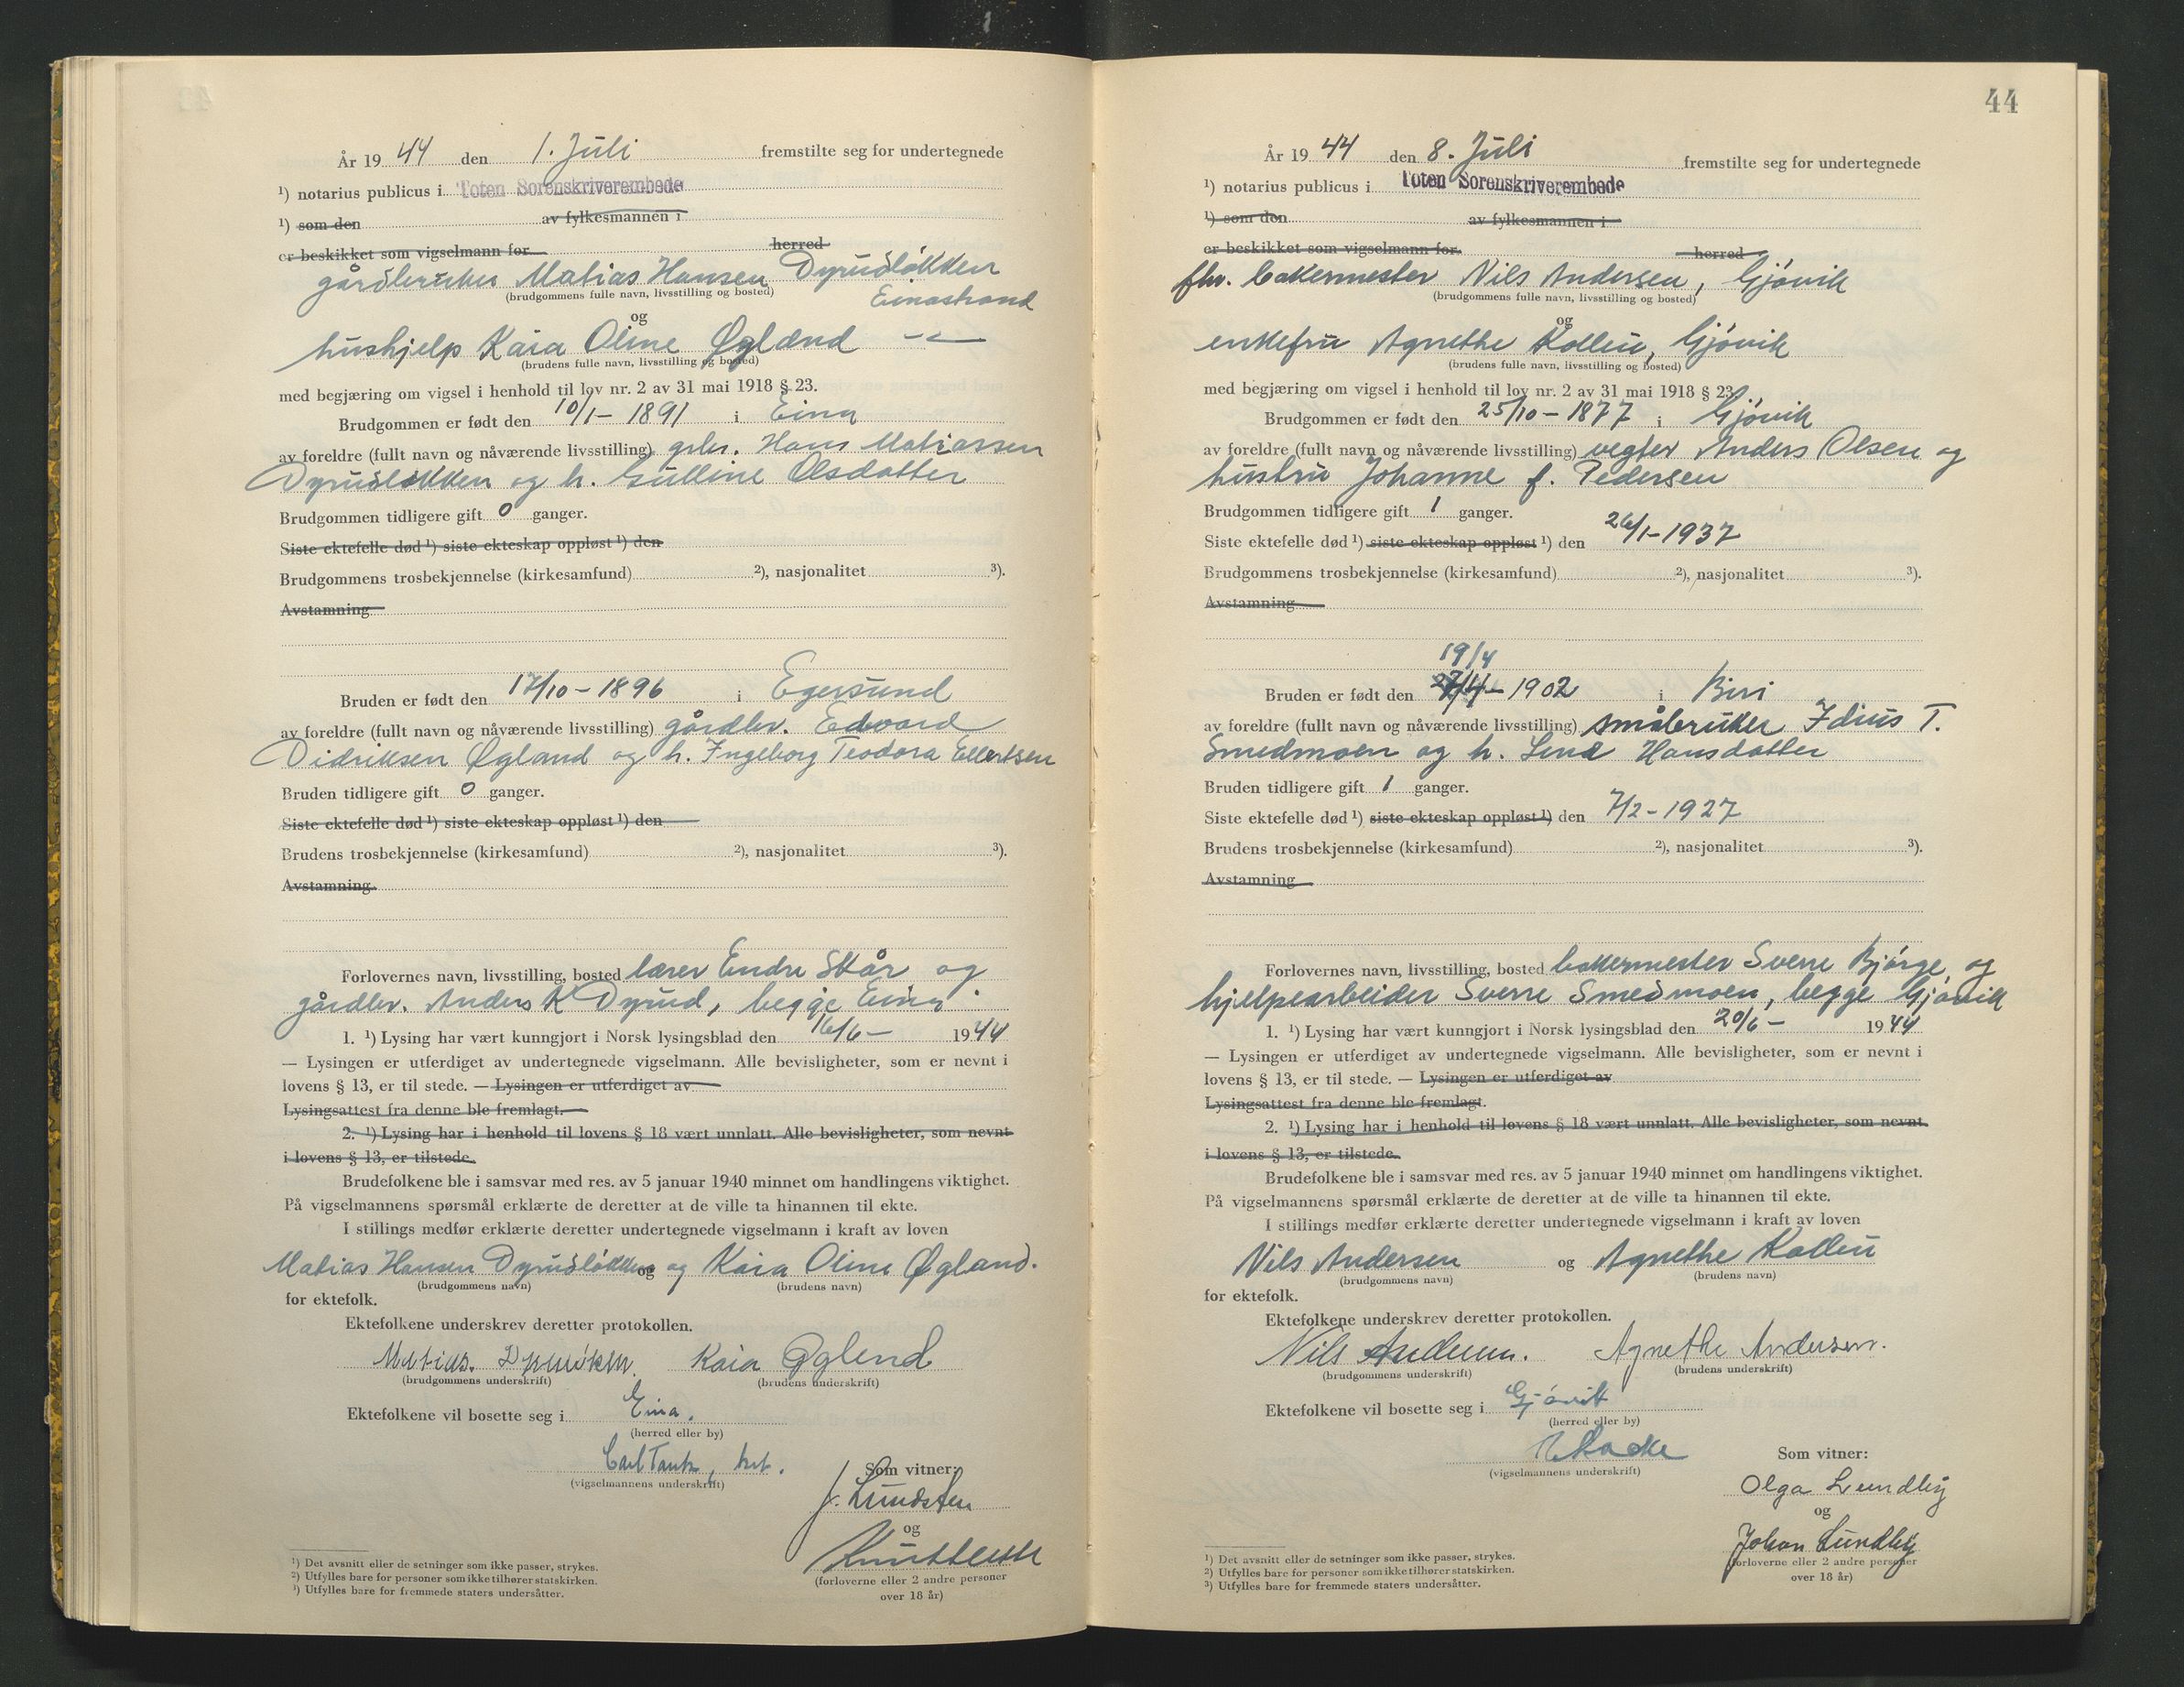 År 19 44 den 1. Juli fremstilte seg for undertegnede
¹) notarius publicus i Toten Sorenskriverembede
¹) som den av fylkesmannen i
er beskikket som vigselmann for herred
gårdbruker Matias Hansen Dyrudløkken
(brudgommens fulle navn, livsstilling og bosted)
Einastrand
og
hushjelp Kaia Oline Øglænd
(brudens fulle navn, livsstilling og bosted)
med begjæring om vigsel i henhold til lov nr. 2 av 31 mai 1918 § 23.
Brudgommen er født den 10/1 - 1891 i Eina
av foreldre (fullt navn og nåværende livsstilling) grbr. Hans Matiassen
Dyrudløkken og h. Gulline Olsdatter
Brudgommen tidligere gift 0 ganger.
Siste ektefelle død ¹) siste ekteskap oppløst ¹) den
Brudgommens trosbekjennelse (kirkesamfund) ²), nasjonalitet ³).
Avstamning
Bruden er født den 17/10 - 1896 i Egersund
av foreldre (fullt navn og nåværende livsstilling) gårdbr. Edvard
Didriksen Øgland og h. Ingeborg Teodora Ellertsen
Bruden tidligere gift 0 ganger.
Siste ektefelle død ¹) siste ekteskap oppløst ¹) den
Brudens trosbekjennelse (kirkesamfund) ²), nasjonalitet ³).
Avstamning
Forlovernes navn, livsstilling, bosted lærer Endre Skår og
gårdbr. Anders K Dyrud, begge Eina.
1. ¹) Lysing har vært kunngjort i Norsk lysingsblad den 16/6 - 1944
— Lysingen er utferdiget av undertegnede vigselmann. Alle bevisligheter, som er nevnt i
lovens § 13, er til stede. — Lysingen er utferdiget av
Lysingsattest fra denne ble fremlagt.
2. ¹) Lysing har i henhold til lovens § 18 vært unnlatt. Alle bevisligheter, som nevnt
i lovens § 13, er tilstede.
Brudefolkene ble i samsvar med res. av 5 januar 1940 minnet om handlingens viktighet.
På vigselmannens spørsmål erklærte de deretter at de ville ta hinannen til ekte.
I stillings medfør erklærte deretter undertegnede vigselmann i kraft av loven
Matias Hansen Dyrudløkken og og Kaia Oline Øgland.
(brudgommens navn) (brudens navn)
for ektefolk.
Ektefolkene underskrev deretter protokollen.
Matias. Kaia Øglend
(brudgommens underskrift) (brudens underskrift)
Ektefolkene vil bosette seg i Eina.
(herred eller by)
Carl
(vigselmannens underskrift)
Som vitner:
J. Lundsten
og
(forloverne eller 2 andre personer
over 18 år)
¹) Det avsnitt eller de setninger som ikke passer, strykes.
²) Utfylles bare for personer som ikke tilhører statskirken.
³) Utfylles bare for fremmede staters undersåtter.
44
År 19 44 den 8. Juli fremstilte seg for undertegnede
¹) notarius publicus i Toten Sorenskriverembede
¹) som den av fylkesmannen i
er beskikket som vigselmann for herred
fhv. bakermester Nils Andersen, Gjøvik
(brudgommens fulle navn, livsstilling og bosted)
og
enkefru Agnethe Kolleru, Gjøvik
(brudens fulle navn, livsstilling og bosted)
med begjæring om vigsel i henhold til lov nr. 2 av 31 mai 1918 § 23.
Brudgommen er født den 25/10 - 1877 i Gjøvik
av foreldre (fullt navn og nåværende livsstilling) vegter Anders Olsen og
hustru Johanne f. Pedersen
Brudgommen tidligere gift 1 ganger.
Siste ektefelle død ¹) siste ekteskap oppløst ¹) den 26/1 - 1937
Brudgommens trosbekjennelse (kirkesamfund) ²), nasjonalitet ³).
Avstamning
19/4
Bruden er født den 1902 i Biri
av foreldre (fullt navn og nåværende livsstilling) småbruker Idius T.
Smedmoen og h. Lina Hansdatter
Bruden tidligere gift 1 ganger.
Siste ektefelle død ¹) siste ekteskap oppløst ¹) den 7/2 - 1927
Brudens trosbekjennelse (kirkesamfund) ²), nasjonalitet ³).
Avstamning
Forlovernes navn, livsstilling, bosted bakermester Sverre Bjørge, og
hjelpearbeider Sverre Smedmoen, begge Gjøvik
1. ¹) Lysing har vært kunngjort i Norsk lysingsblad den 20/6 - 1944
— Lysingen er utferdiget av undertegnede vigselmann. Alle bevisligheter, som er nevnt i
lovens § 13, er til stede. — Lysingen er utferdiget av
Lysingsattest fra denne ble fremlagt.
2. ¹) Lysing har i henhold til lovens § 18 vært unnlatt. Alle bevisligheter, som nevnt
i lovens § 13, er tilstede.
Brudefolkene ble i samsvar med res. av 5 januar 1940 minnet om handlingens viktighet.
På vigselmannens spørsmål erklærte de deretter at de ville ta hinannen til ekte.
I stillings medfør erklærte deretter undertegnede vigselmann i kraft av loven
Nils Andersen og Agnethe
(brudgommens navn) (brudens navn)
for ektefolk.
Ektefolkene underskrev deretter protokollen.
Nils Andersen. Agnethe Andersen.
(brudgommens underskrift) (brudens underskrift)
Ektefolkene vil bosette seg i Gjøvik
(herred eller by)
(vigselmannens underskrift)
Som vitner:
Olga Lundby
og
Johan Lundby
(forloverne eller 2 andre personer
over 18 år)
¹) Det avsnitt eller de setninger som ikke passer, strykes.
²) Utfylles bare for personer som ikke tilhører statskirken.
³) Utfylles bare for fremmede staters undersåtter.